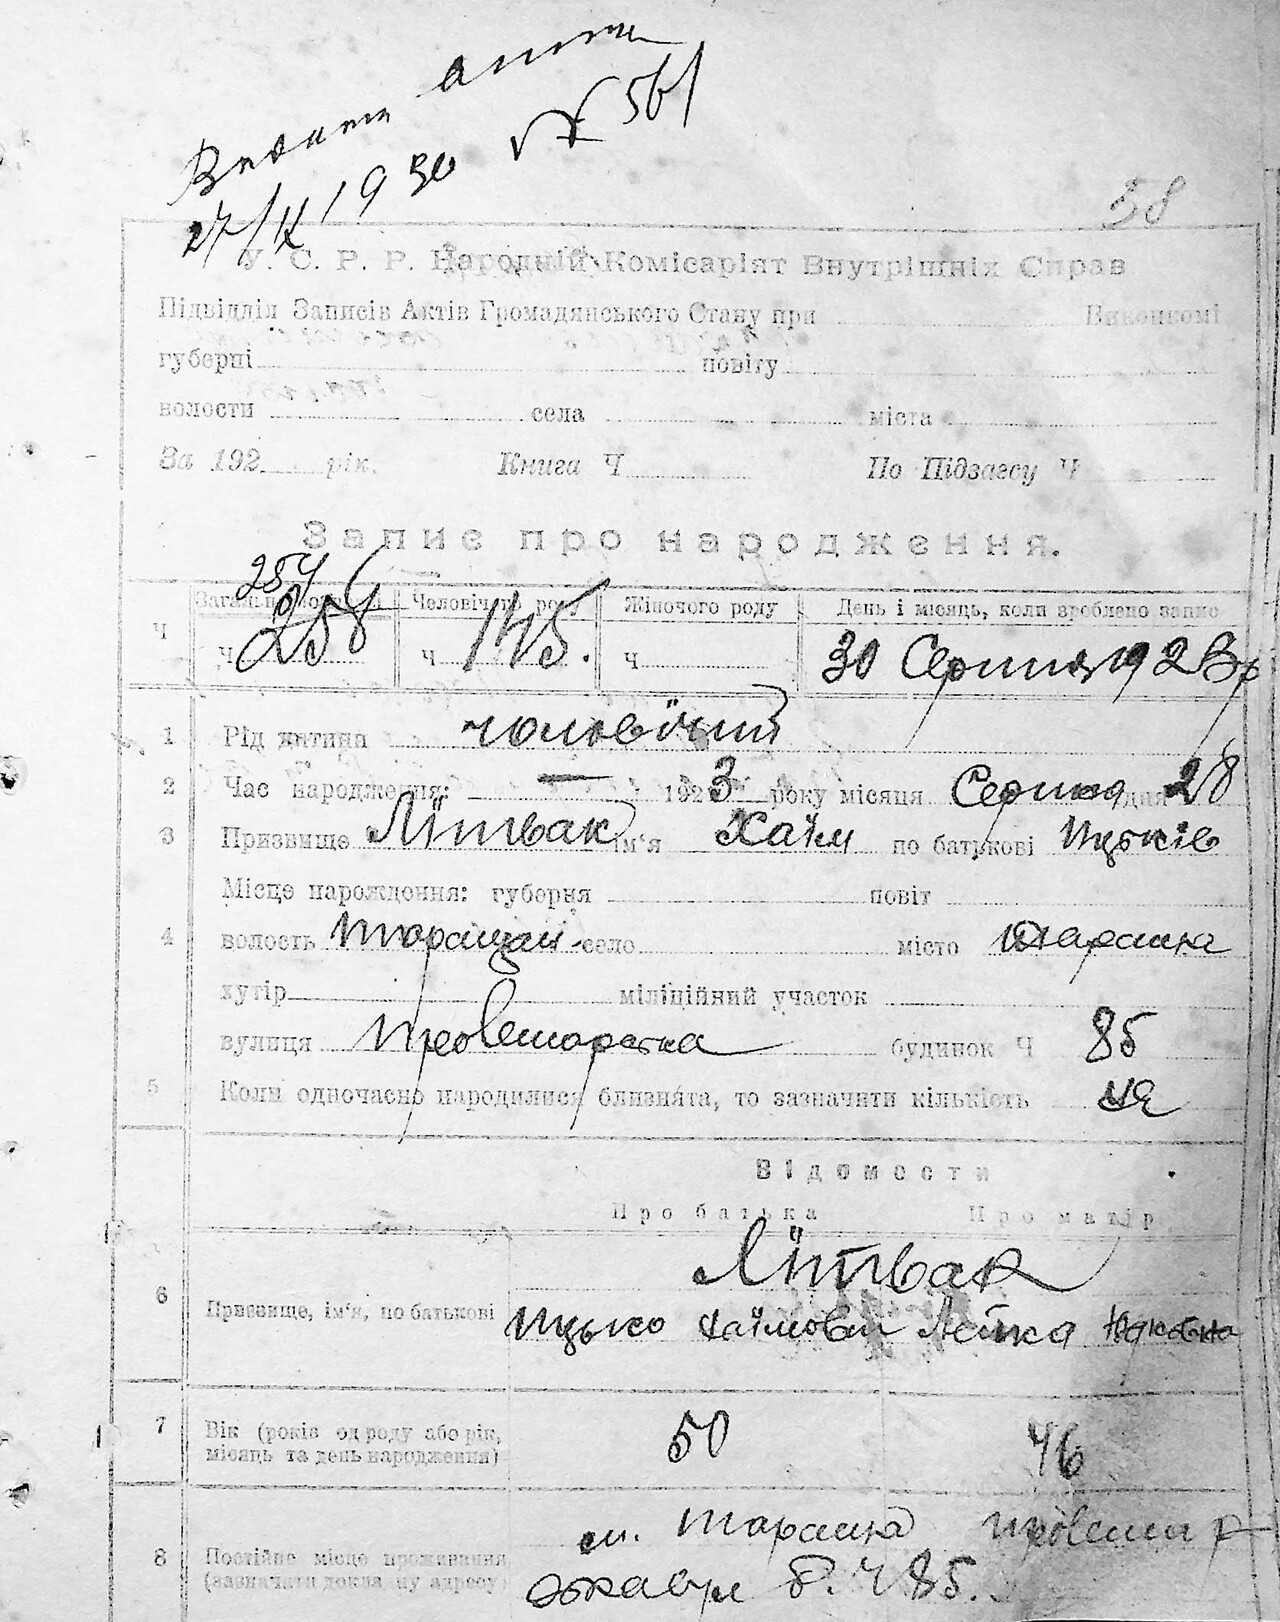 27/IX 1930 № 561
58
У. С. Р. Р. Народній Комісаріят Внутрішніх Справ
Підвідділ Записів Актів Громадянського Стану при Виконкомі
губерні повіту
волости села міста
За 192 рік. Книга Ч По Підзагсу Ч
Запис про народження.
254
Загальн Человічого роду Жіночого роду День і місяць, коли зроблено запис
Ч ч 258 ч 145. ч 30 Серпня 1923р
1 Рід дитина чоловічий
2 Час народження: — 1923 року місяця Серпня дня 28
3 Призвище Літвак ім'я Хаїм по батькові Ицьків
Місце народження: губерня повіт
4 волость Таращан село місто Тараща
хутір міліційний участок
вулиця будинок Ч 85
5 Коли одночасно народилися близнята, то зазначити кількість не
Відомости
Про батька Про матір
Літвак
6 Призвище, ім'я, по батькові Ицько Хаїмович Лейка
7 Вік (років од роду або рік, 50 46
місяць та день народження)
м. Тараща
8 Постійне місце проживання
(зазначити докладну адресу) б. Ч 85.